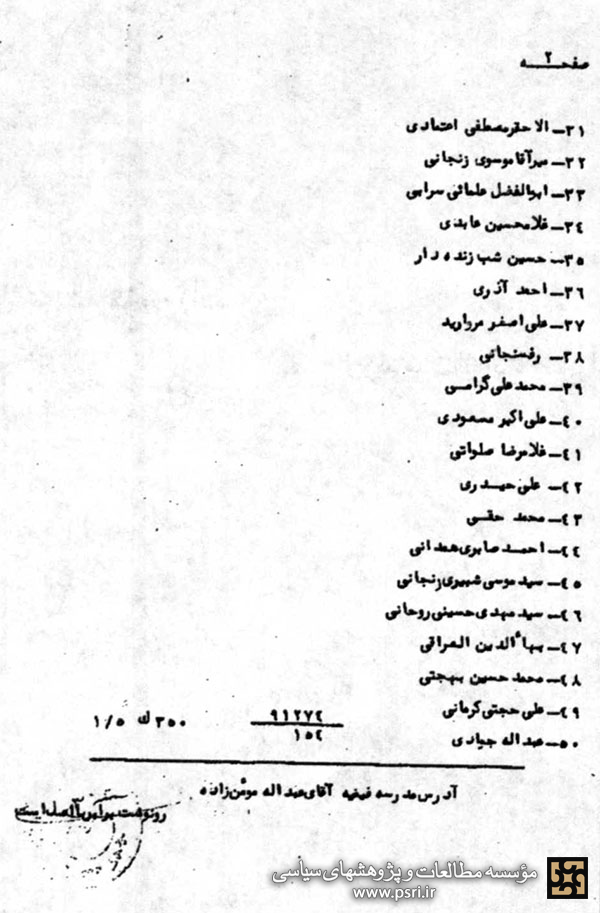 صفحه ۲
۳۱- الاحقر مصطفی اعتمادی
۳۲- میرآقا موسوی زنجانی
۳۳- ابوالفضل علمائی سرابی
۳۴- غلامحسین عابدی
۳۵- حسین شب زنده دار
۳۶- احمد آذری
۳۷- علی اصغر مروارید
۳۸- رفسنجانی
۳۹- محمد علی گرامی
۴۰- علی اکبر مسعودی
۴۱- غلامرضا صلواتی
۴۲- علی حیدری
۴۳- محمد حقی
۴۴- احمد صابری همدانی
۴۵- سید موسی شبیری زنجانی
۴۶- سید مهدی حسینی روحانی
۴۷- بهاءالدین العراقی
۴۸- محمد حسین بهجتی
۴۹- علی حجتی کرمانی
۵۰- عبداله جیادی
۹۱۲۷۴
۱۵۴
۳۵۰ ك ۱/۵
آدرس مدرسه فیضیه آقای عبداله مومن زاده
رونوشت برابر با اصل است
مؤسسه مطالعات و پژوهشهای سیاسی
www.psri.ir